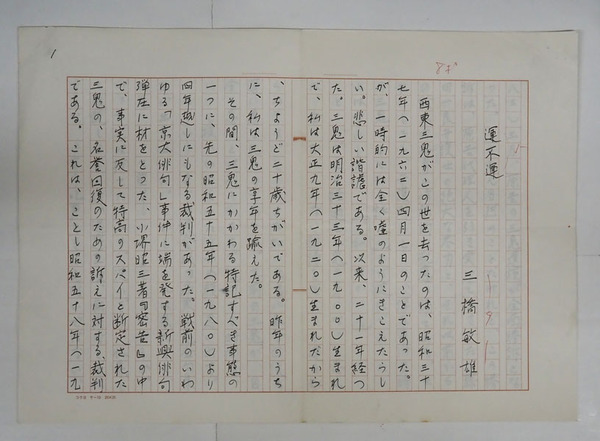 1
8ポ
運不運
三橋敏雄
西東三鬼がこの世を去ったのは、昭和三十
七年(一九六二)四月一日のことであった。
が、一時的には全く嘘のようにきこえたらし
い。悲しい諧謔である。以来、二十一年経っ
た。三鬼は明治三十三年(一九〇〇)生まれ
で、私は大正九年(一九二〇)生まれだから
、ちょうど二十歳ちがいである。昨年のうち
に、私は三鬼の享年を踰えた。
その間、三鬼にかかわる特記すべき事態の
一つに、先の昭和五十五年(一九八〇)より
四年越しにもなる裁判があった。戦前のいわ
ゆる「京大俳句」事件に端を発する新興俳句
弾圧に材をとった、小堺昭三著『密告』の中
で、事実に反して特高のスパイと断定された
三鬼の、名誉回復のための訴えに対する裁判
である。これは、ことし昭和五十八年(一九